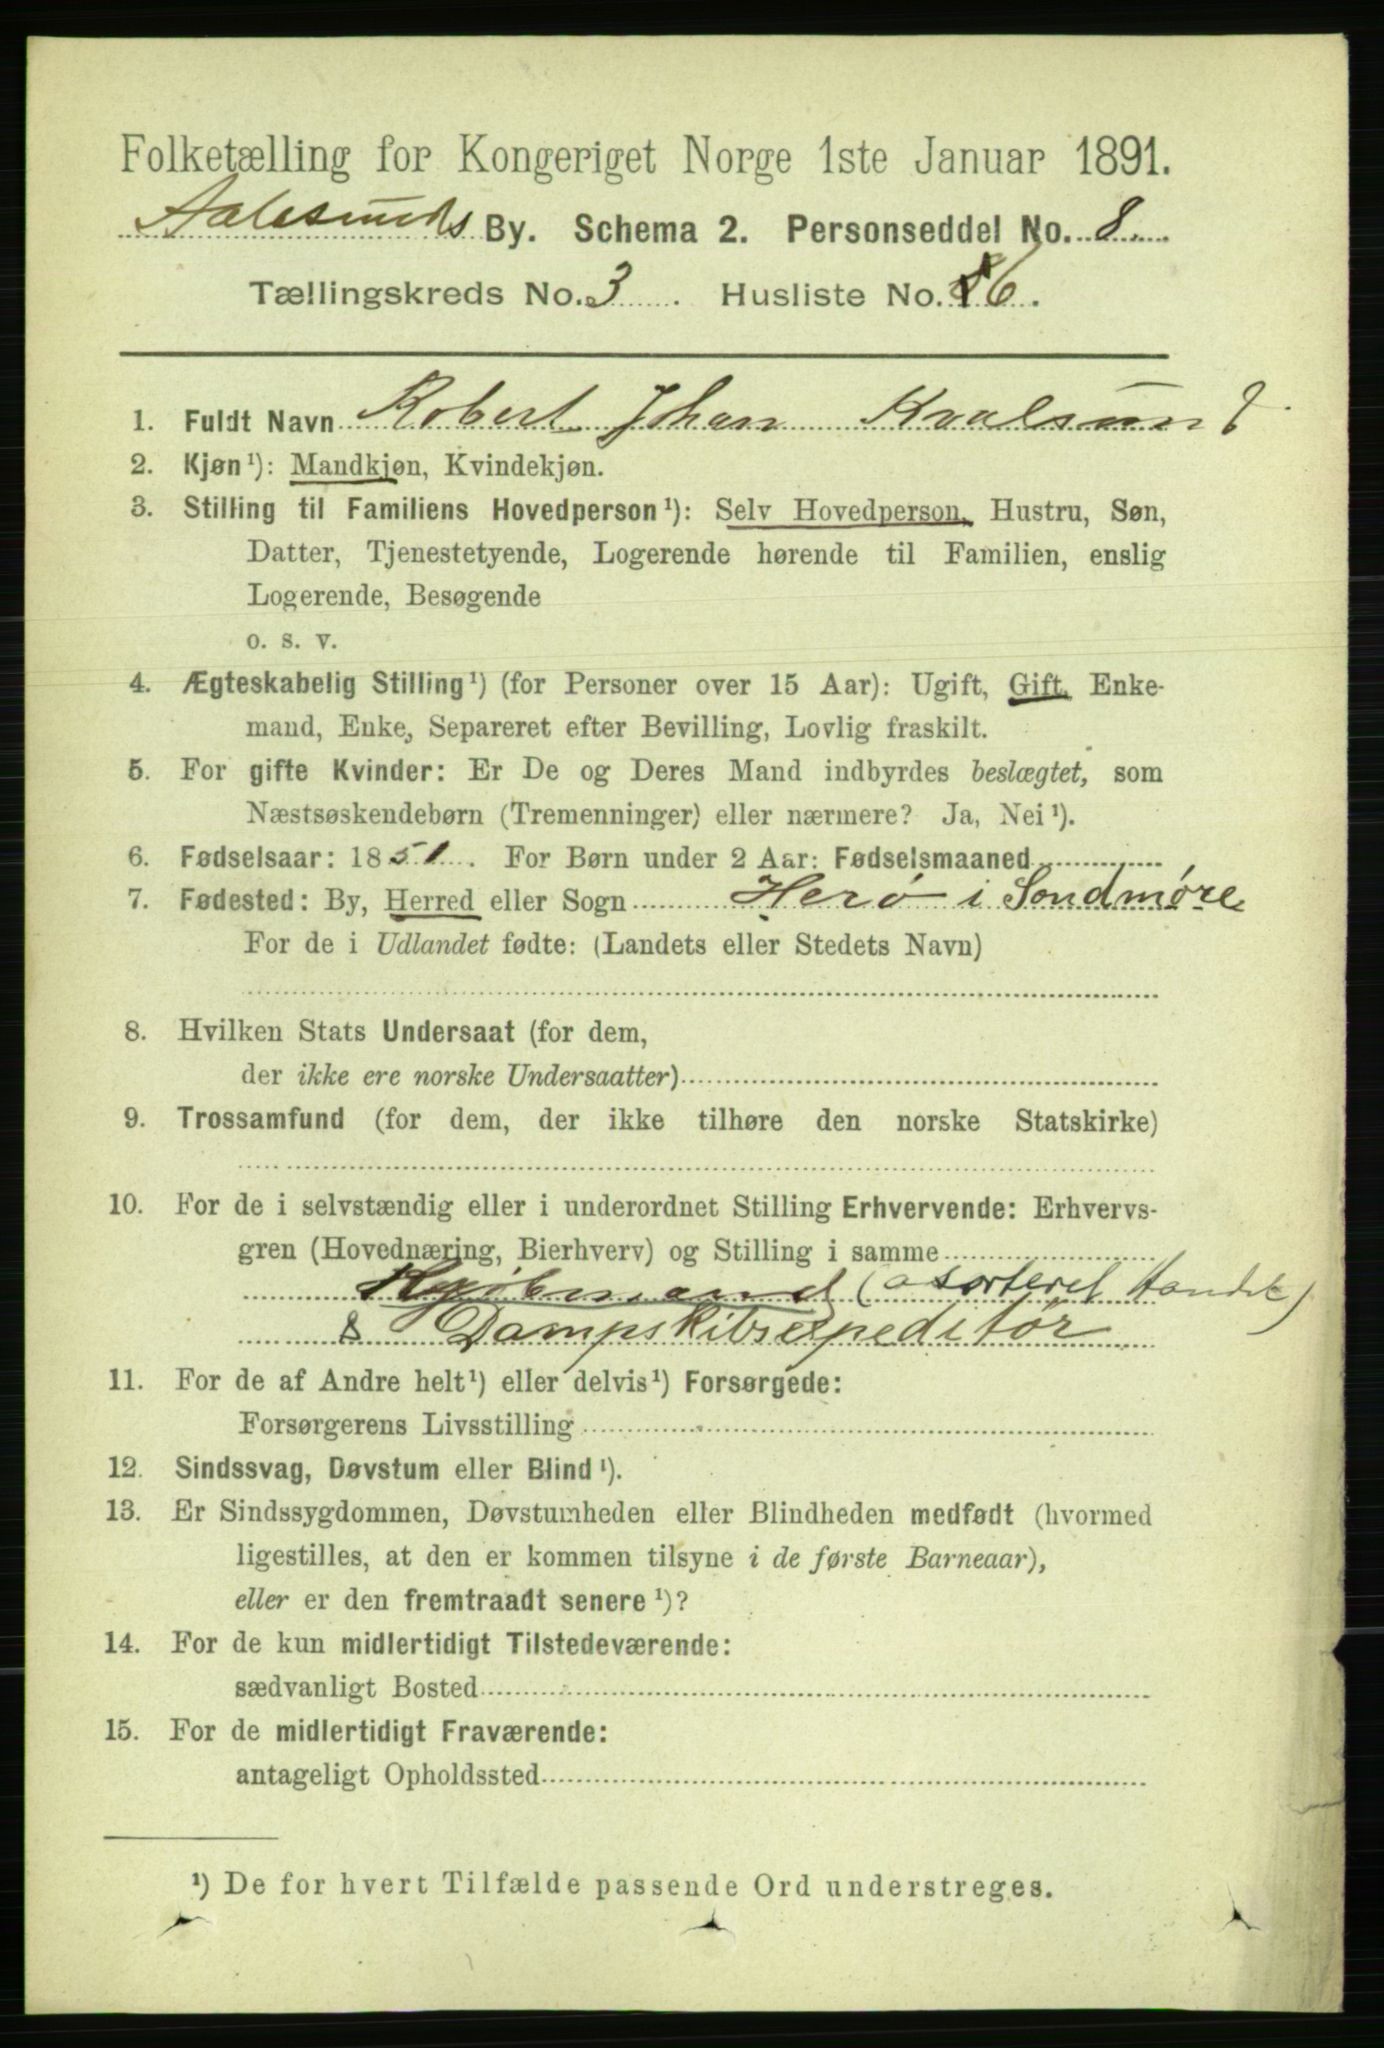 Folketælling for Kongeriget Norge 1ste Januar 1891.
Aalesunds By. Schema 2. Personseddel No. 8.
Tællingskreds No. 3. Husliste No. 86.
1. Fuldt Navn Robert Johan Kvalsund
2. Kjøn¹): Mandkjøn, Kvindekjøn.
3. Stilling til Familiens Hovedperson¹): Selv Hovedperson, Hustru, Søn,
Datter, Tjenestetyende, Logerende hørende til Familien, enslig
Logerende, Besøgende
o. s. v.
4. Ægteskabelig Stilling¹) (for Personer over 15 Aar): Ugift, Gift, Enke-
mand, Enke, Separeret efter Bevilling, Lovlig fraskilt.
5. For gifte Kvinder: Er De og Deres Mand indbyrdes beslægtet, som
Næstsøskendebørn (Tremenninger) eller nærmere? Ja, Nei¹).
6. Fødselsaar: 1851. For Børn under 2 Aar: Fødselsmaaned
7. Fødested: By, Herred eller Sogn Herö i Sondmøre
For de i Udlandet fødte: (Landets eller Stedets Navn)
8. Hvilken Stats Undersaat (for dem,
der ikke ere norske Undersaatter)
9. Trossamfund (for dem, der ikke tilhøre den norske Statskirke)
10. For de i selvstændig eller i underordnet Stilling Erhvervende: Erhvervs-
gren (Hovednæring, Bierhverv) og Stilling i samme
Kjøbmand (asorteret Handel)
& Dampskibsexpeditør
11. For de af Andre helt¹) eller delvis¹) Forsørgede:
Forsørgerens Livsstilling
12. Sindssvag, Døvstum eller Blind¹).
13. Er Sindssygdommen, Døvstumheden eller Blindheden medfødt (hvormed
ligestilles, at den er kommen tilsyne i de første Barneaar),
eller er den fremtraadt senere¹)?
14. For de kun midlertidigt Tilstedeværende:
sædvanligt Bosted
15. For de midlertidigt Fraværende:
antageligt Opholdssted
¹) De for hvert Tilfælde passende Ord understreges.